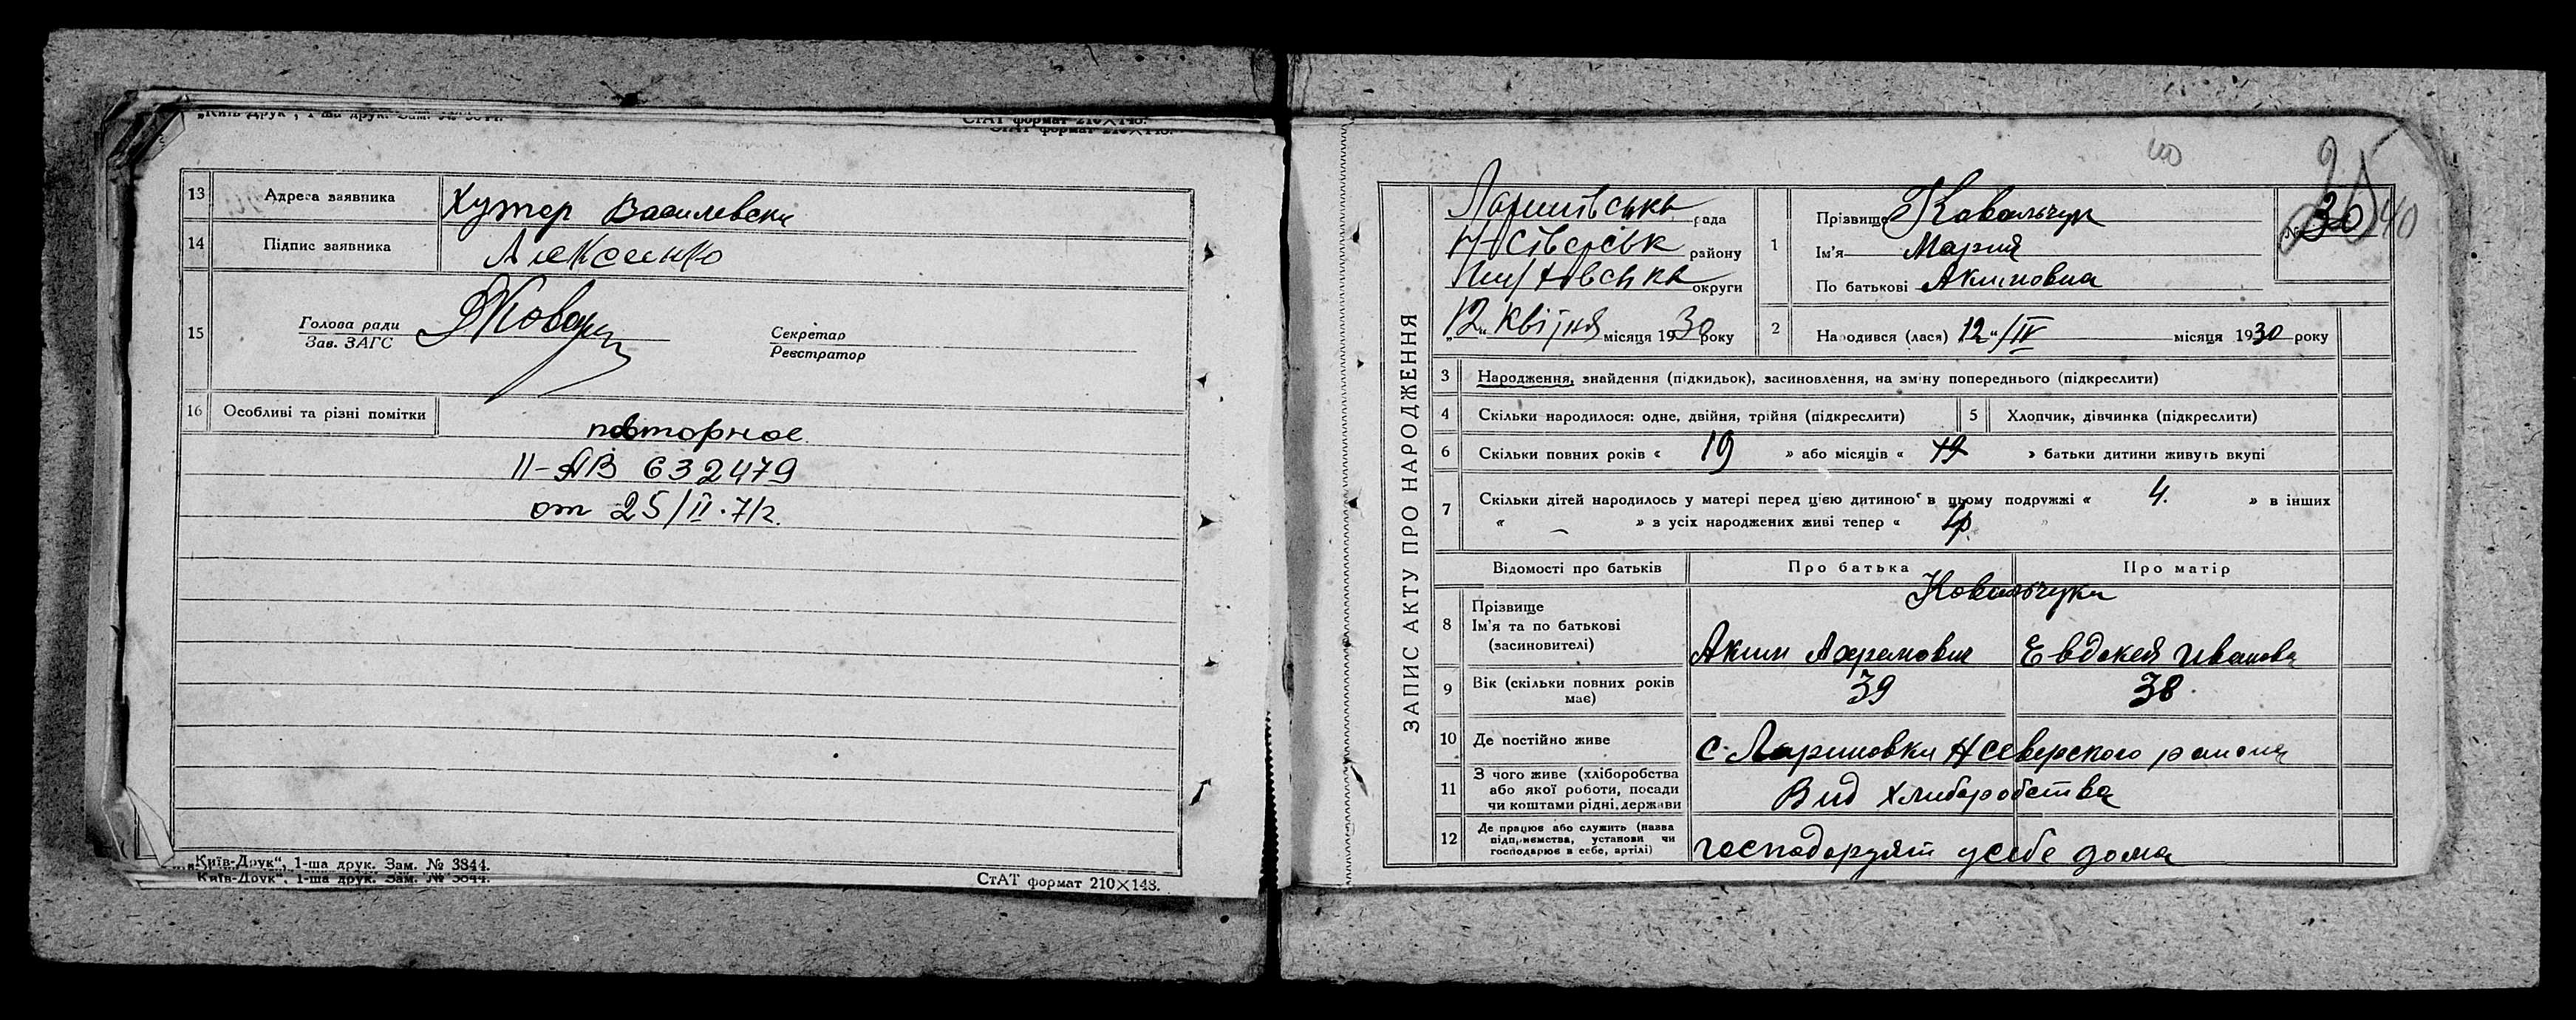 „Київ-Друк", 1-ша друк. Зам. № 3844.
СтАТ формат 210×148.
СтАТ формат 210×148.
13 Адреса заявника Хутор Василевски
14 Підпис заявника Алексеенко
15 Голова ради
Зав. ЗАГС
Секретар
Реєстратор
16 Особливі та різні помітки
повторное
II-АВ 632479
от 25/II.71г.
„Київ-Друк", 1-ша друк. Зам. № 3844.
„Київ-Друк", 1-ша друк. Зам. № 3844.
СтАТ формат 210×148.
ЗАПИС АКТУ ПРО НАРОДЖЕННЯ
рада
Н-Сіверськ району
округи
„12„ квітня місяця 1930 року
40
№ 30
1 Прізвище Ковальчук
Ім'я Мария
По батькові Акимовна
2 Народився (лася) 12"/IV місяця 1930 року
3 Народження, знайдення (підкидьок), засиновлення, на зміну попереднього (підкреслити)
4 Скільки народилося: одне, двійня, трійня (підкреслити) 5 Хлопчик, дівчинка (підкреслити)
6 Скільки повних років « 19 » або місяців « 19 » батьки дитини живуть вкупі
7 Скільки дітей народилось у матері перед цією дитиною: в цьому подружжі « 4. » в інших
« – » з усіх народжених живі тепер « »
Відомості про батьків Про батька Про матір
Ковальчуки
8 Прізвище
Ім'я та по батькові
(засиновителі)
Аким Ахрамович Евдокея Иванова
9 Вік (скільки повних років
має)
39 38
10 Де постійно живе с. Лариновки Н Северского района
11 З чого живе (хліборобства
або якої роботи, посади
чи коштами рідні, держави
Вид хлиборобства
12 Де працює або служить (назва
підприємства, установи чи
господарює в себе, артілі)
господоруят усебе дома